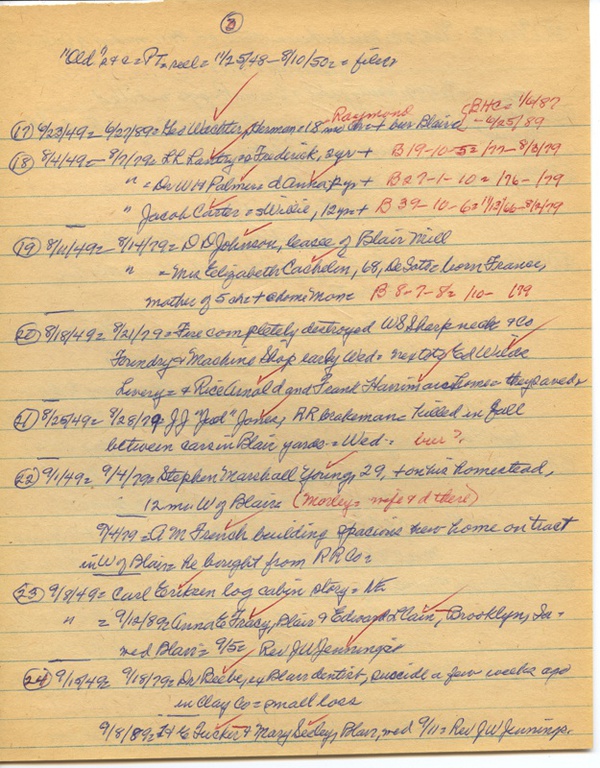 (3)
"Old" 24a = PT = reel = 11/25/48 - 8/10/50 = = files
Raymond (BHC = 1/6/87
(17) 6/23/49 = 6/27/89 = Geo Wachter, Herman = 18 mo chr + bur Blair - 6/25/89
(18) 8/4/49 - 8/7/79 = = Frederick, 2yr + B 19-10-5 = /77 - 8/3/79
" = Dr W H Palmer = d Anna, yr + B 27-1-10 = /76 - /79
" Jacob Carter = Willie, 12yr + B 39-10-6 = 11/13/66 - 8/3/79
(19) 8/11/49 = 8/14/79 = D D Johnson, leasee of Blair Mill
" = Mrs Elizabeth Cachelin, 68, DeSoto = born France,
mother of 5 ch = + @ home Mon = B 8-7-8 = /10 - /79
(20) 8/18/49 = 8/21/79 = Fire completely destroyed W S Sharpneck & Co
Foundry & Machine Shop early Wed = next Ed Wilds
Livery = & Rice Arnold and Frank Harriman homes = they saved =
(21) 8/25/49 = 8/28/79 = J J "Jud" Jones, RR brakeman = killed in fall
between cars in Blair yards = Wed = bur?
(22) 9/1/49 = 9/4/79 = Stephen Marshall Young, 29, + on his homestead,
12 mi W of Blair (Morley = wife & d there)
9/4/79 = A M French building spacious new home on tract
in W of Blair = he bought from RR Co =
(23) 9/8/49 = Carl Eriksen log cabin story =
" = 9/12/89 = Anna E Tracy, Blair & Edward Plain, Brooklyn, Ia =
wed Blair = 9/5 = Rev J W Jennings
(24) 9/15/49 = 9/18/79 = Dr Beebe, ex Blair dentist, suicide a few weeks ago
in Clay Co = small loss
9/8/89 = Tucker & Mary Seeley, Blair, wed 9/11 = Rev J W Jennings.